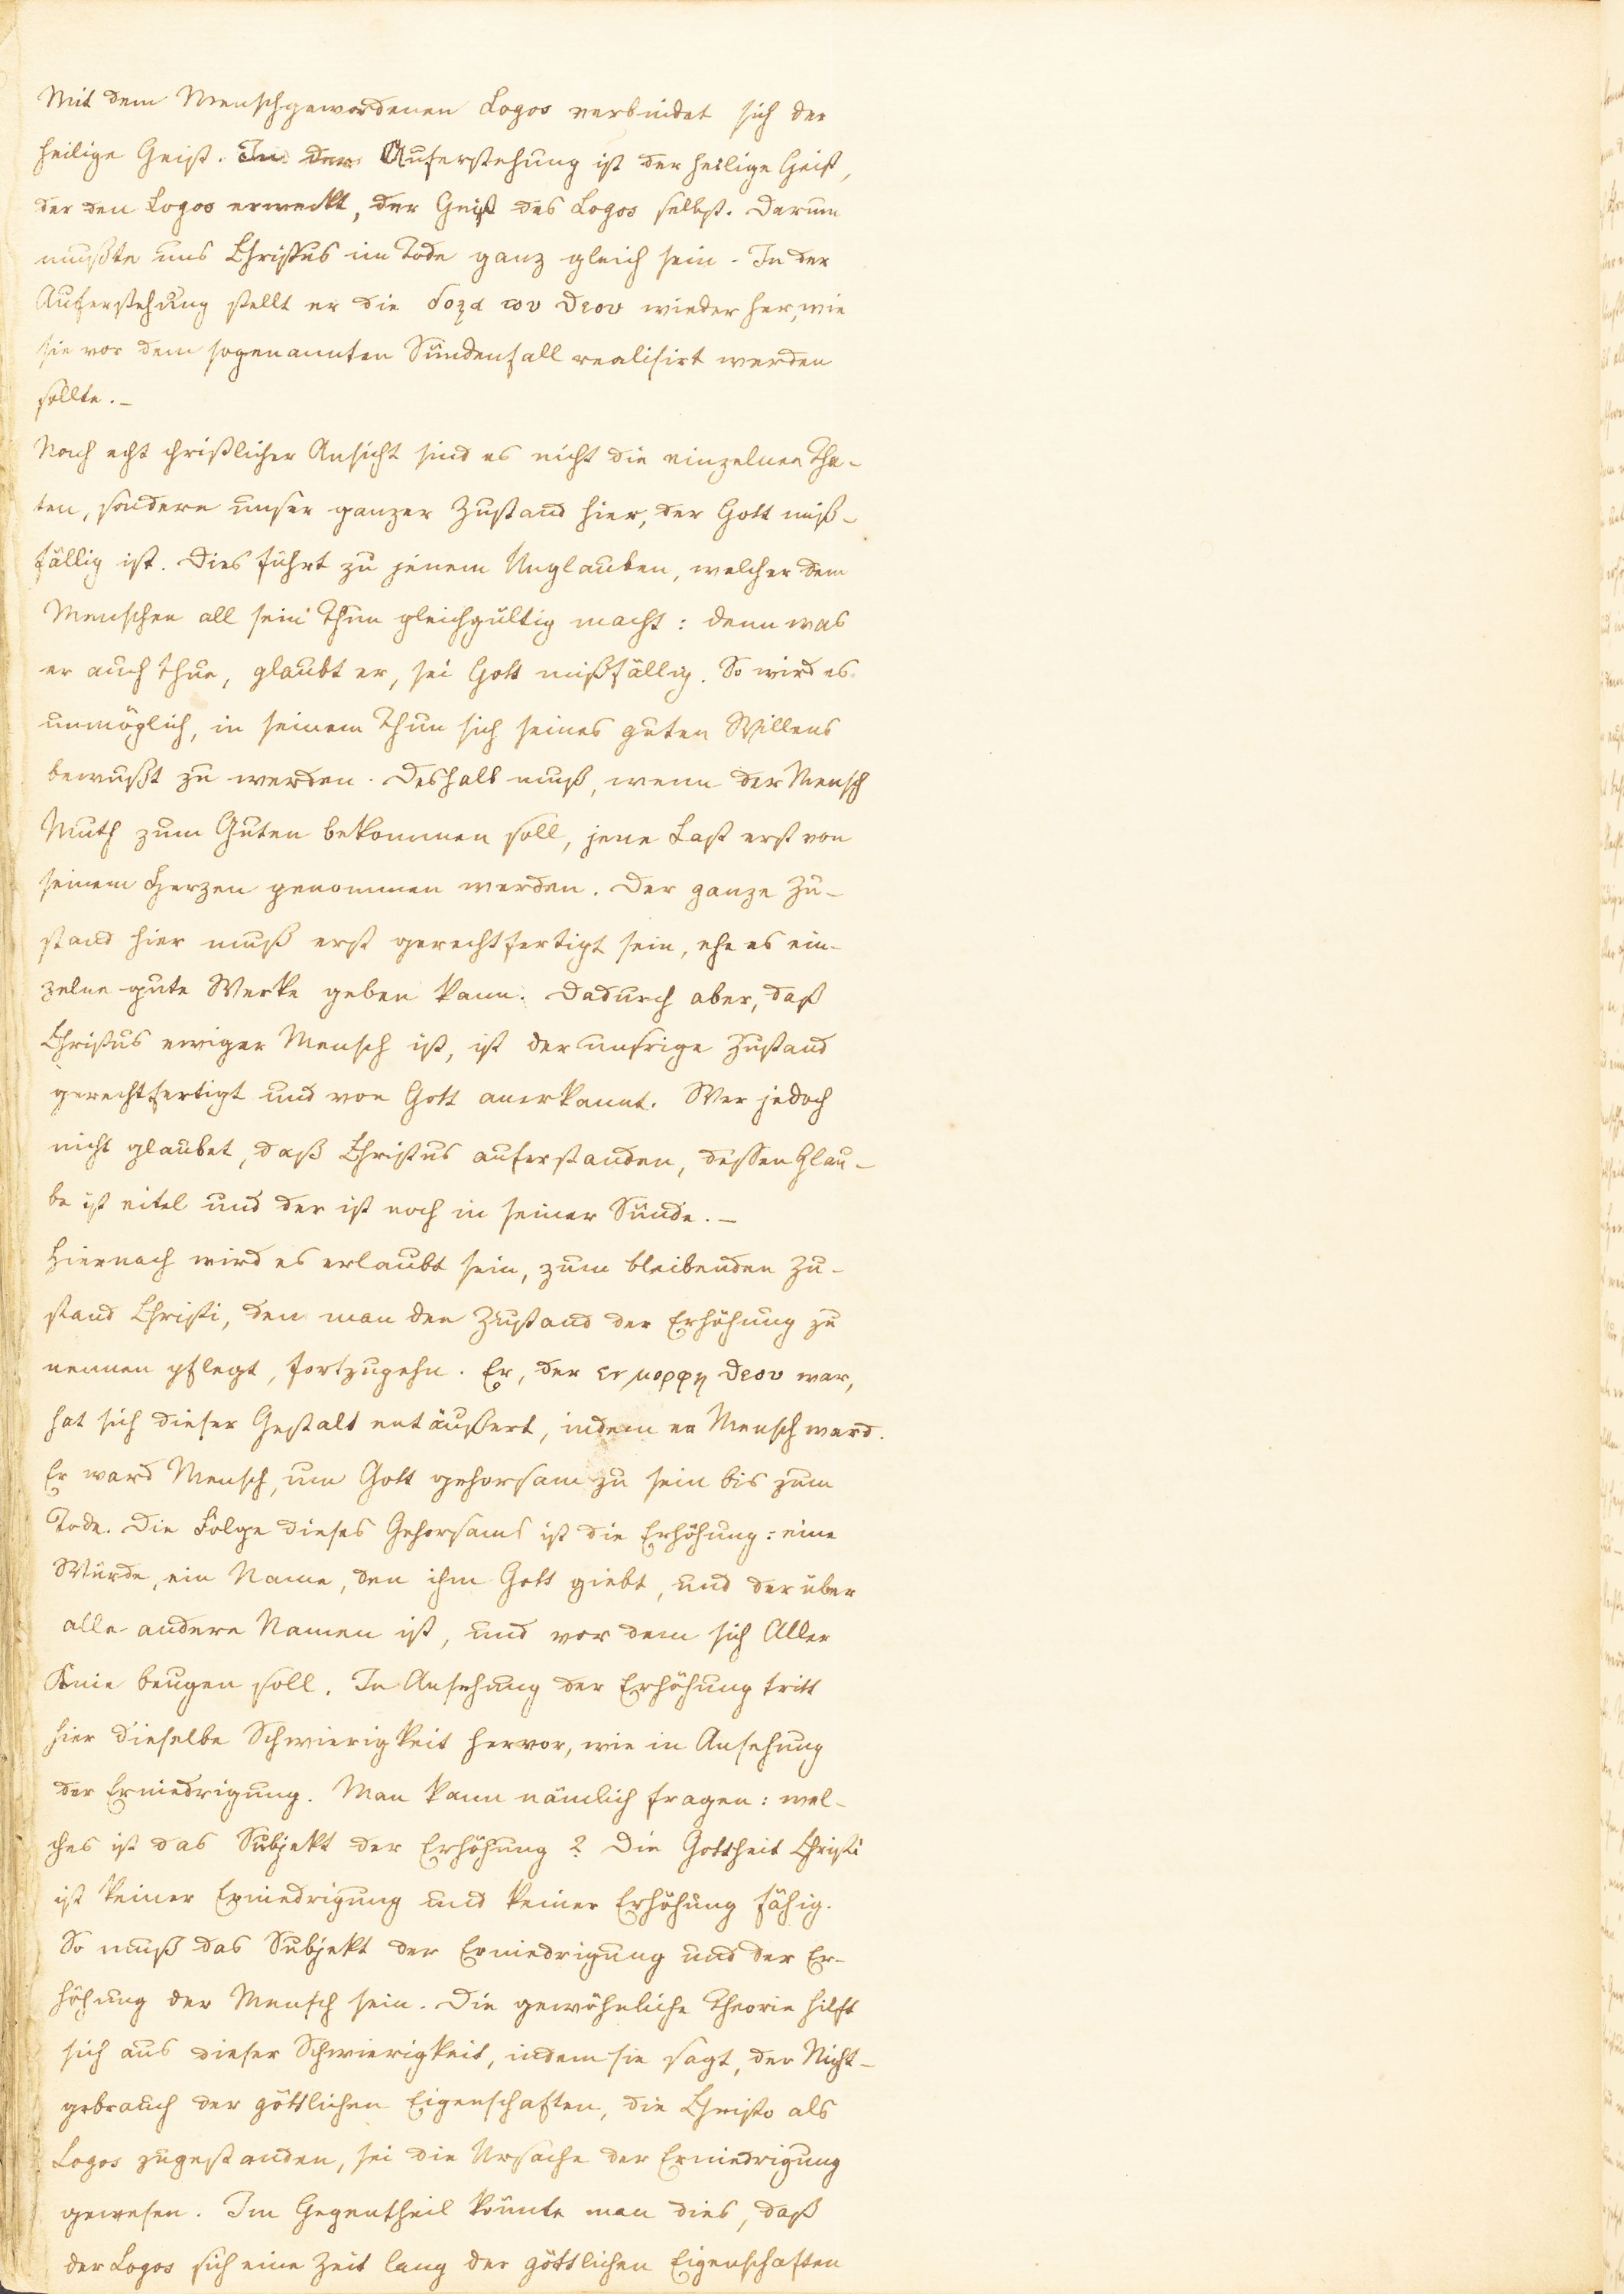 Mit dem Menschgewordenen Logos verbindet sich der
heilige Geist. In der Auferstehung ist der heilige Geist,
der den Logos erweckt, der Geist des Logos selbst. Darum
mußte uns Christus im Tode ganz gleich sein. In der
Auferstehung stellt er die δοξα του ϑεου wieder her, wie
sie vor dem sogenannten Sündenfall realisirt werden
sollte. –
Nach echt christlicher Ansicht sind es nicht die einzelnen Tha-
ten, sondern unser ganzer Zustand hier, der Gott miß-
fällig ist. Dies führt zu jenem Unglauben, welcher dem
Menschen all sein Thun gleichgültig macht: denn was
er auch thue, glaubt er, sei Gott mißfällig. So wird es
unmöglich, in seinem Thun sich seines guten Willens
bewußt zu werden. Deshalb muß, wenn der Mensch
Muth zum Guten bekommen soll, jene Last erst von
seinem Herzen genommen werden. Der ganze Zu-
stand hier muß erst gerechtfertigt sein, ehe es ein-
zelne gute Werke geben kann. Dadurch aber, daß
Christus ewiger Mensch ist, ist der unsrige Zustand
gerechtfertigt und von Gott anerkannt. Wer jedoch
nicht glaubet, daß Christus auferstanden, dessen Glau-
be ist eitel und der ist noch in seiner Sünde. –
Hiernach wird es erlaubt sein, zum bleibenden Zu-
stand Christi, den man den Zustand der Erhöhung zu
nennen pflegt, fortzugehn. Er, der εν μορφη ϑεου war,
hat sich dieser Gestalt entäußert, indem er Mensch ward.
Er ward Mensch, um Gott gehorsam zu sein bis zum
Tode. Die Folge dieses Gehorsams ist die Erhöhung: eine
Würde, ein Name, den ihm Gott giebt, und der über
alle andere Namen ist, und vor dem sich Aller
Knie beugen soll. In Ansehung der Erhöhung tritt
hier dieselbe Schwierigkeit hervor, wie in Ansehung
der Erniedrigung. Man kann nämlich fragen: wel-
ches ist das Subjekt der Erhöhung? Die Gottheit Christi
ist keiner Erniedrigung und keiner Erhöhung fähig.
So muß das Subjekt der Erniedrigung und der Er-
höhung der Mensch sein. Die gewöhnliche Theorie hilft
sich aus dieser Schwierigkeit, indem sie sagt, der Nicht-
gebrauch der göttlichen Eigenschaften, die Christo als
Logos zugestanden, sei die Ursache der Erniedrigung
gewesen. Im Gegentheil könnte man dies, daß
der Logos sich eine Zeit lang der göttlichen Eigenschaften